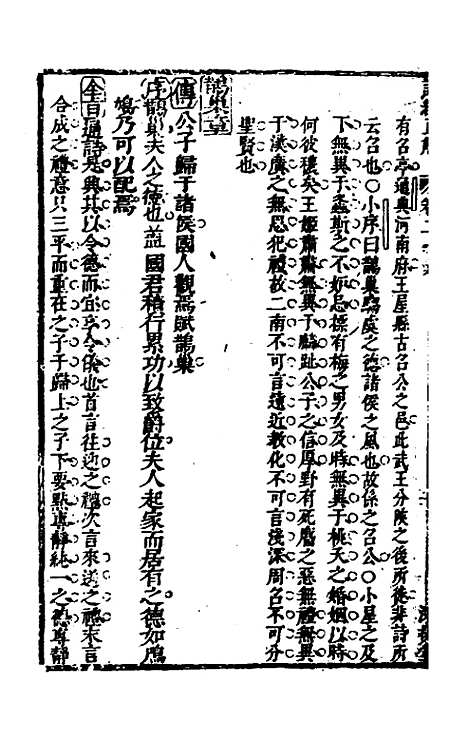 有召亭通典河南府王屋縣古召公之邑此武王分陝之後所徙非詩所
云召也○小序曰鵲巢騶虞之德諸侯之風也故係之召公○小星之及
下無異于螽斯之不妬忌摽有梅之男女及時無異于桃夭之婚姻以時
何彼穠矣王姬肅雝無異于麟趾公子之信厚野有死麕之惡無禮無異
于漢廣之無思犯禮故二南不可言遠近教化不可言淺深周召不可分
聖賢也
鵲巢章
傳公子歸于諸侯國人觀焉賦鵲巢
序鵲巢夫人之德也益國君積行累功以致爵位夫人起家而居有之德如鳲
鳩乃可以配焉
全旨通詩是興其以令德而宜乎令儀也首言往迎之禮次言來送之禮末言
合成之禮意只三平而重在之子于歸上之子下要點專靜純一之德專靜